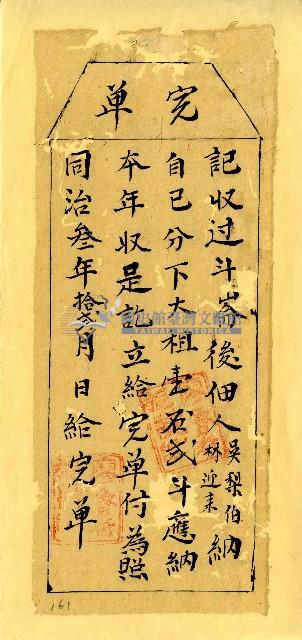 完单
記收过斗崙後佃人吳梨伯林近来納
自己分下大租壹石弍斗應納
本年收足訖立給完单付為照
同治叁年拾弍月 日給完单
161